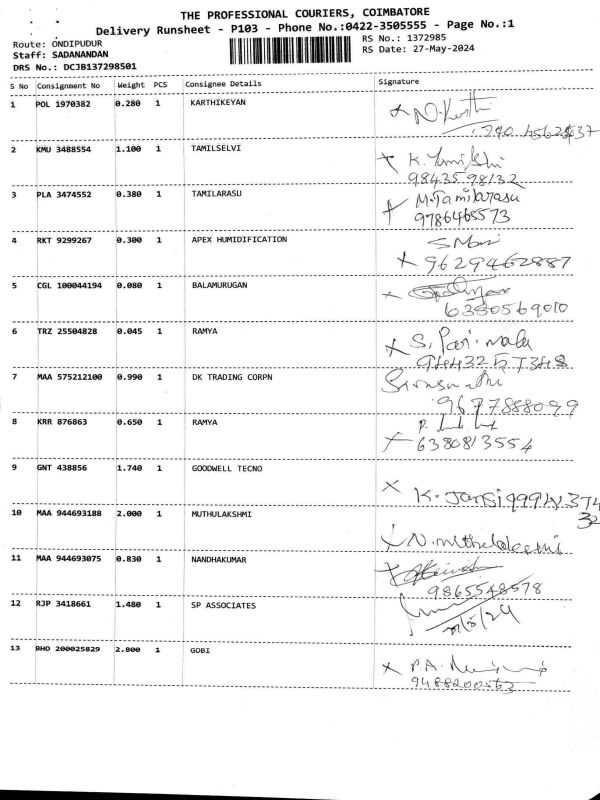 THE PROFESSIONAL COURIERS, COIMBATORE
Delivery Runsheet - P103 - Phone No.:0422-3505555 - Page No.:1
Route: ONDIPUDUR RS No.: 1372985
Staff: SADANANDAN RS Date: 27-May-2024
DRS No.: DCJB137298501
S No Consignment No Weight PCS Consignee Details Signature
1 POL 1970382 0.280 1 KARTHIKEYAN
2 KMU 3488554 1.100 1 TAMILSELVI
9843598132
3 PLA 3474552 0.380 1 TAMILARASU M.Tamilarasu
9786465573
4 RKT 9299267 0.300 1 APEX HUMIDIFICATION S Mani
9629462887
5 CGL 100044194 0.080 1 BALAMURUGAN
6380569010
6 TRZ 25504828 0.045 1 RAMYA S. Parimala
9443257348
7 MAA 575212100 0.990 1 DK TRADING CORPN
9677888099
8 KRR 876863 0.650 1 RAMYA
6380813554
9 GNT 438856 1.740 1 GOODWELL TECNO
K. Jansi
10 MAA 944693188 2.000 1 MUTHULAKSHMI
11 MAA 944693075 0.830 1 NANDHAKUMAR
9865548578
12 RJP 3418661 1.480 1 SP ASSOCIATES
13 BHO 200025829 2.800 1 GOBI
9488200563